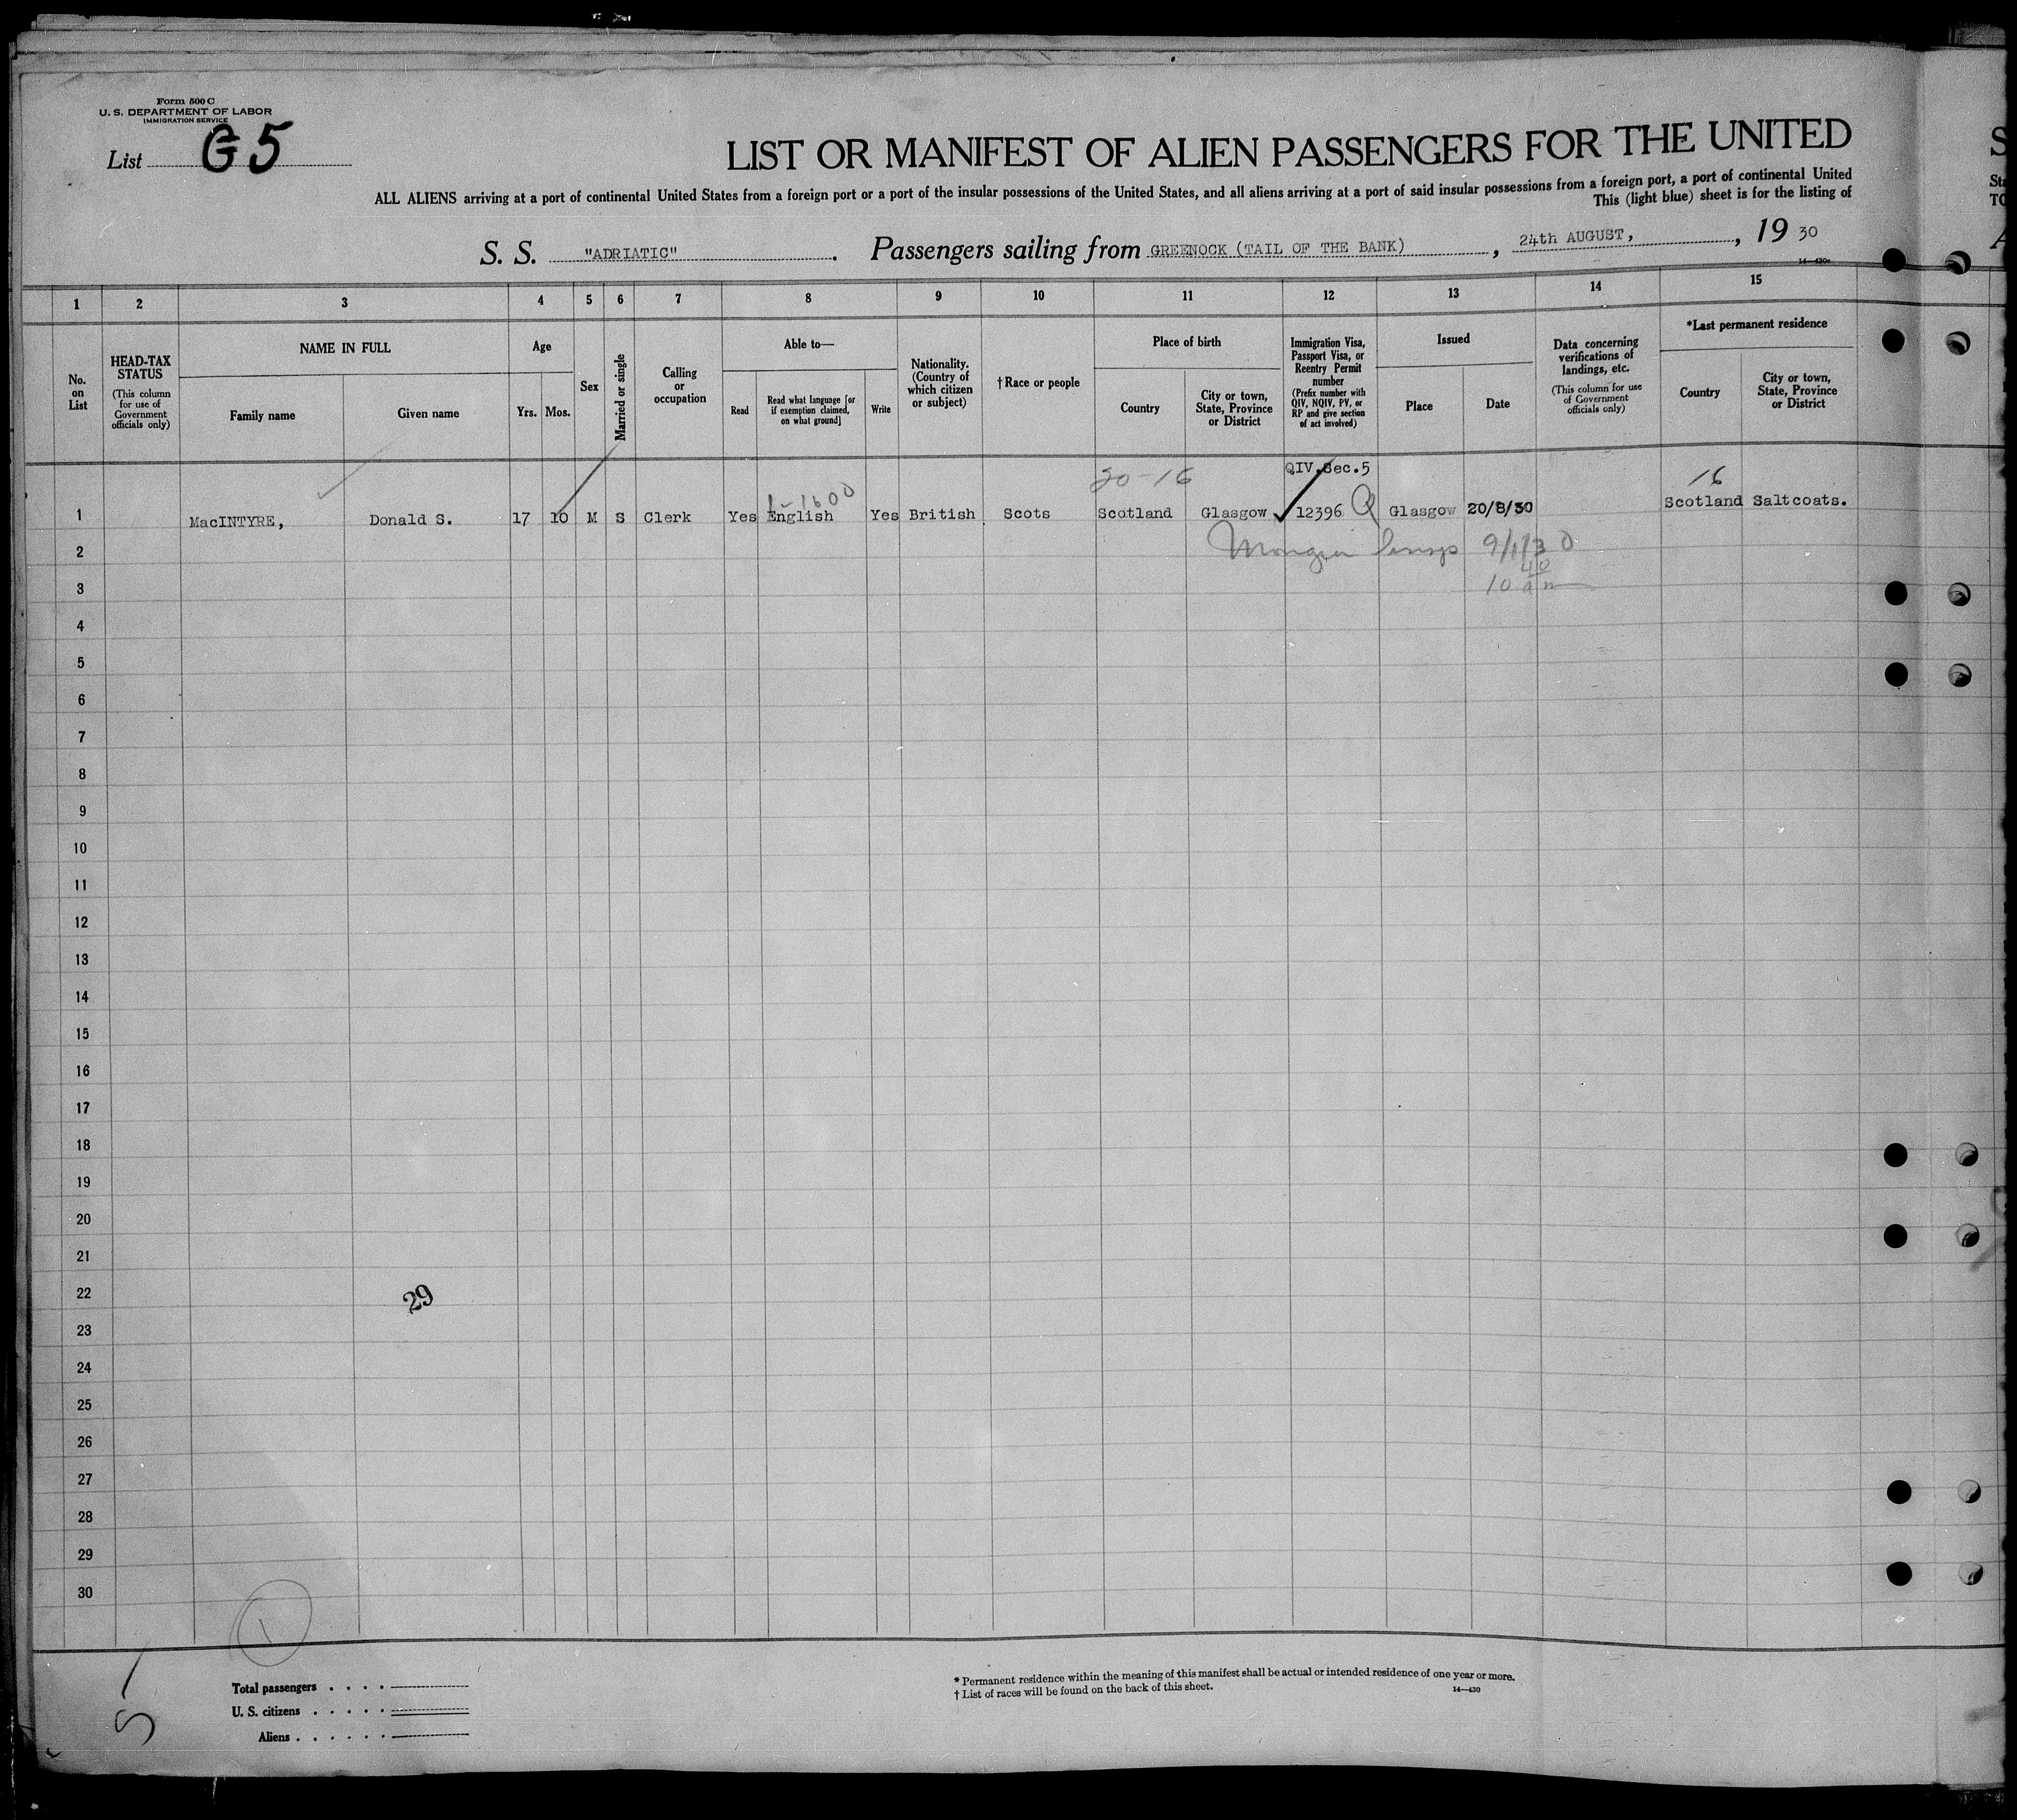 Form 500 C
U. S. DEPARTMENT OF LABOR
IMMIGRATION SERVICE
List G5
LIST OR MANIFEST OF ALIEN PASSENGERS FOR THE UNITED
ALL ALIENS arriving at a port of continental United States from a foreign port or a port of the insular possessions of the United States, and all aliens arriving at a port of said insular possessions from a foreign port, a port of continental United
This (light blue) sheet is for the listing of
S. S. "ADRIATIC". Passengers sailing from GREENOCK (TAIL OF THE BANK), 24th AUGUST, , 19 30
1 2 3 4 5 6 7 8 9 10 11 12 13 14 15
No. on List
HEAD-TAX STATUS (This column for use of Government officials only)
NAME IN FULL
Family name
Given name
Age
Yrs.
Mos.
Sex
Married or single
Calling or occupation
Able to—
Read
Read what language [or if exemption claimed, on what ground]
Write
Nationality. (Country of which citizen or subject)
† Race or people
Place of birth
Country
City or town, State, Province or District
Immigration Visa, Passport Visa, or Reentry Permit number (Prefix number with QIV, NQIV, PV, or RP and give section of act involved)
Issued
Place
Date
Data concerning verifications of landings, etc. (This column for use of Government officials only)
*Last permanent residence
Country
City or town, State, Province or District
20-16 QIV.Sec.5 16
1 MacINTYRE, Donald S. 17 10 M S Clerk Yes English Yes British Scots Scotland Glasgow 12396 Q Glasgow 20/8/30 Scotland Saltcoats.
2
3
4
5
6
7
8
9
10
11
12
13
14
15
16
17
18
19
20
21
22
29
23
24
25
26
27
28
29
30
1
Total passengers
U. S. citizens
Aliens
* Permanent residence within the meaning of this manifest shall be actual or intended residence of one year or more.
† List of races will be found on the back of this sheet.
14—430